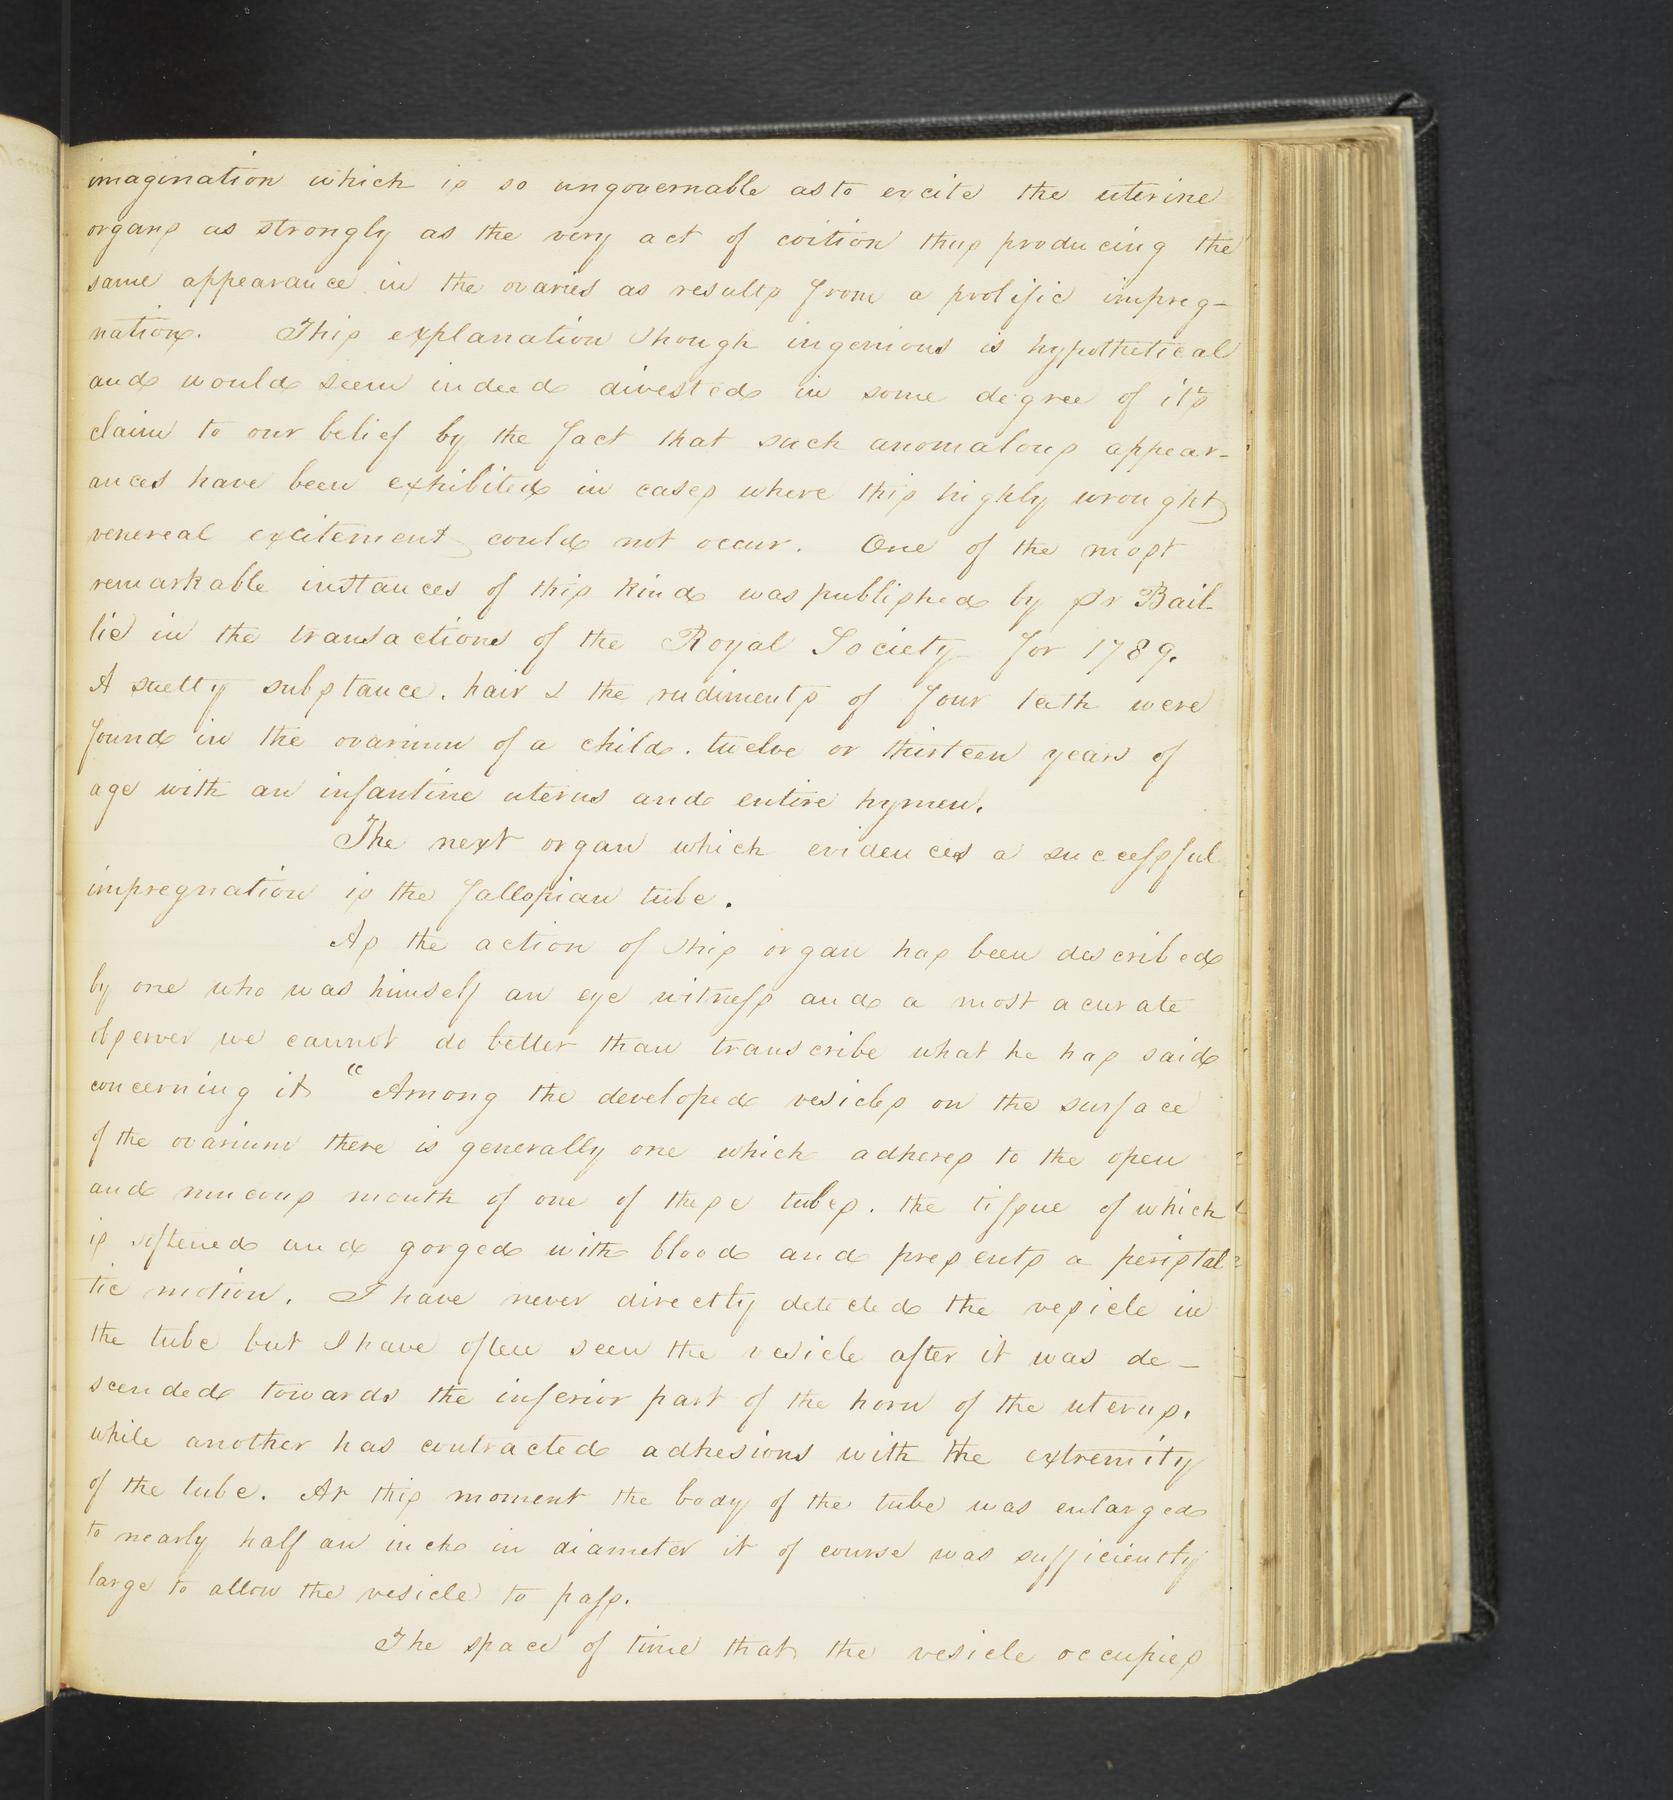 imagination which is so ungovernable as to excite the uterine
organs as strongly as the very act of coition thus producing the
same appearance in the ovaries as results from a prolific impreg-
nation. This explanation though ingenious is hypothetical
and would seem indeed divested in some degree of it's
claim to our belief by the fact that such anomalous appear-
ances have been exhibited in cases where this highly wrought
venereal excitement could not occur. One of the most
remarkable instances of this kind was published by Dr Bail-
lie in the transactions of the Royal Society for 1789.
A suetty substance. hair & the rudiments of four teeth were
found in the ovarium of a child. twelve or thirteen years of
age with an infantine uterus and entire hymen.
The next organ which evidences a successful
impregnation is the fallopian tube.
As the action of this organ has been described
by one who was himself an eye witness and a most acurate
observer we cannot do better than transcribe what he has said
concerning it "Among the developed vesicles on the surface
of the ovarium there is generally one which adheres to the open
and mucous mouth of one of these tubes. the tissue of which
is softened and gorged with blood and presents a peristal-
tic motion. I have never directly detected the vesicle in
the tube but I have often seen the vesicle after it was de-
scended towards the inferior part of the horn of the uterus,
while another has contracted adhesions with the extremity
of the tube. At this moment the body of the tube was enlarged
to nearly half an inch in diameter it of course was sufficiently
large to allow the vesicle to pass.
The space of time that the vesicle occupies